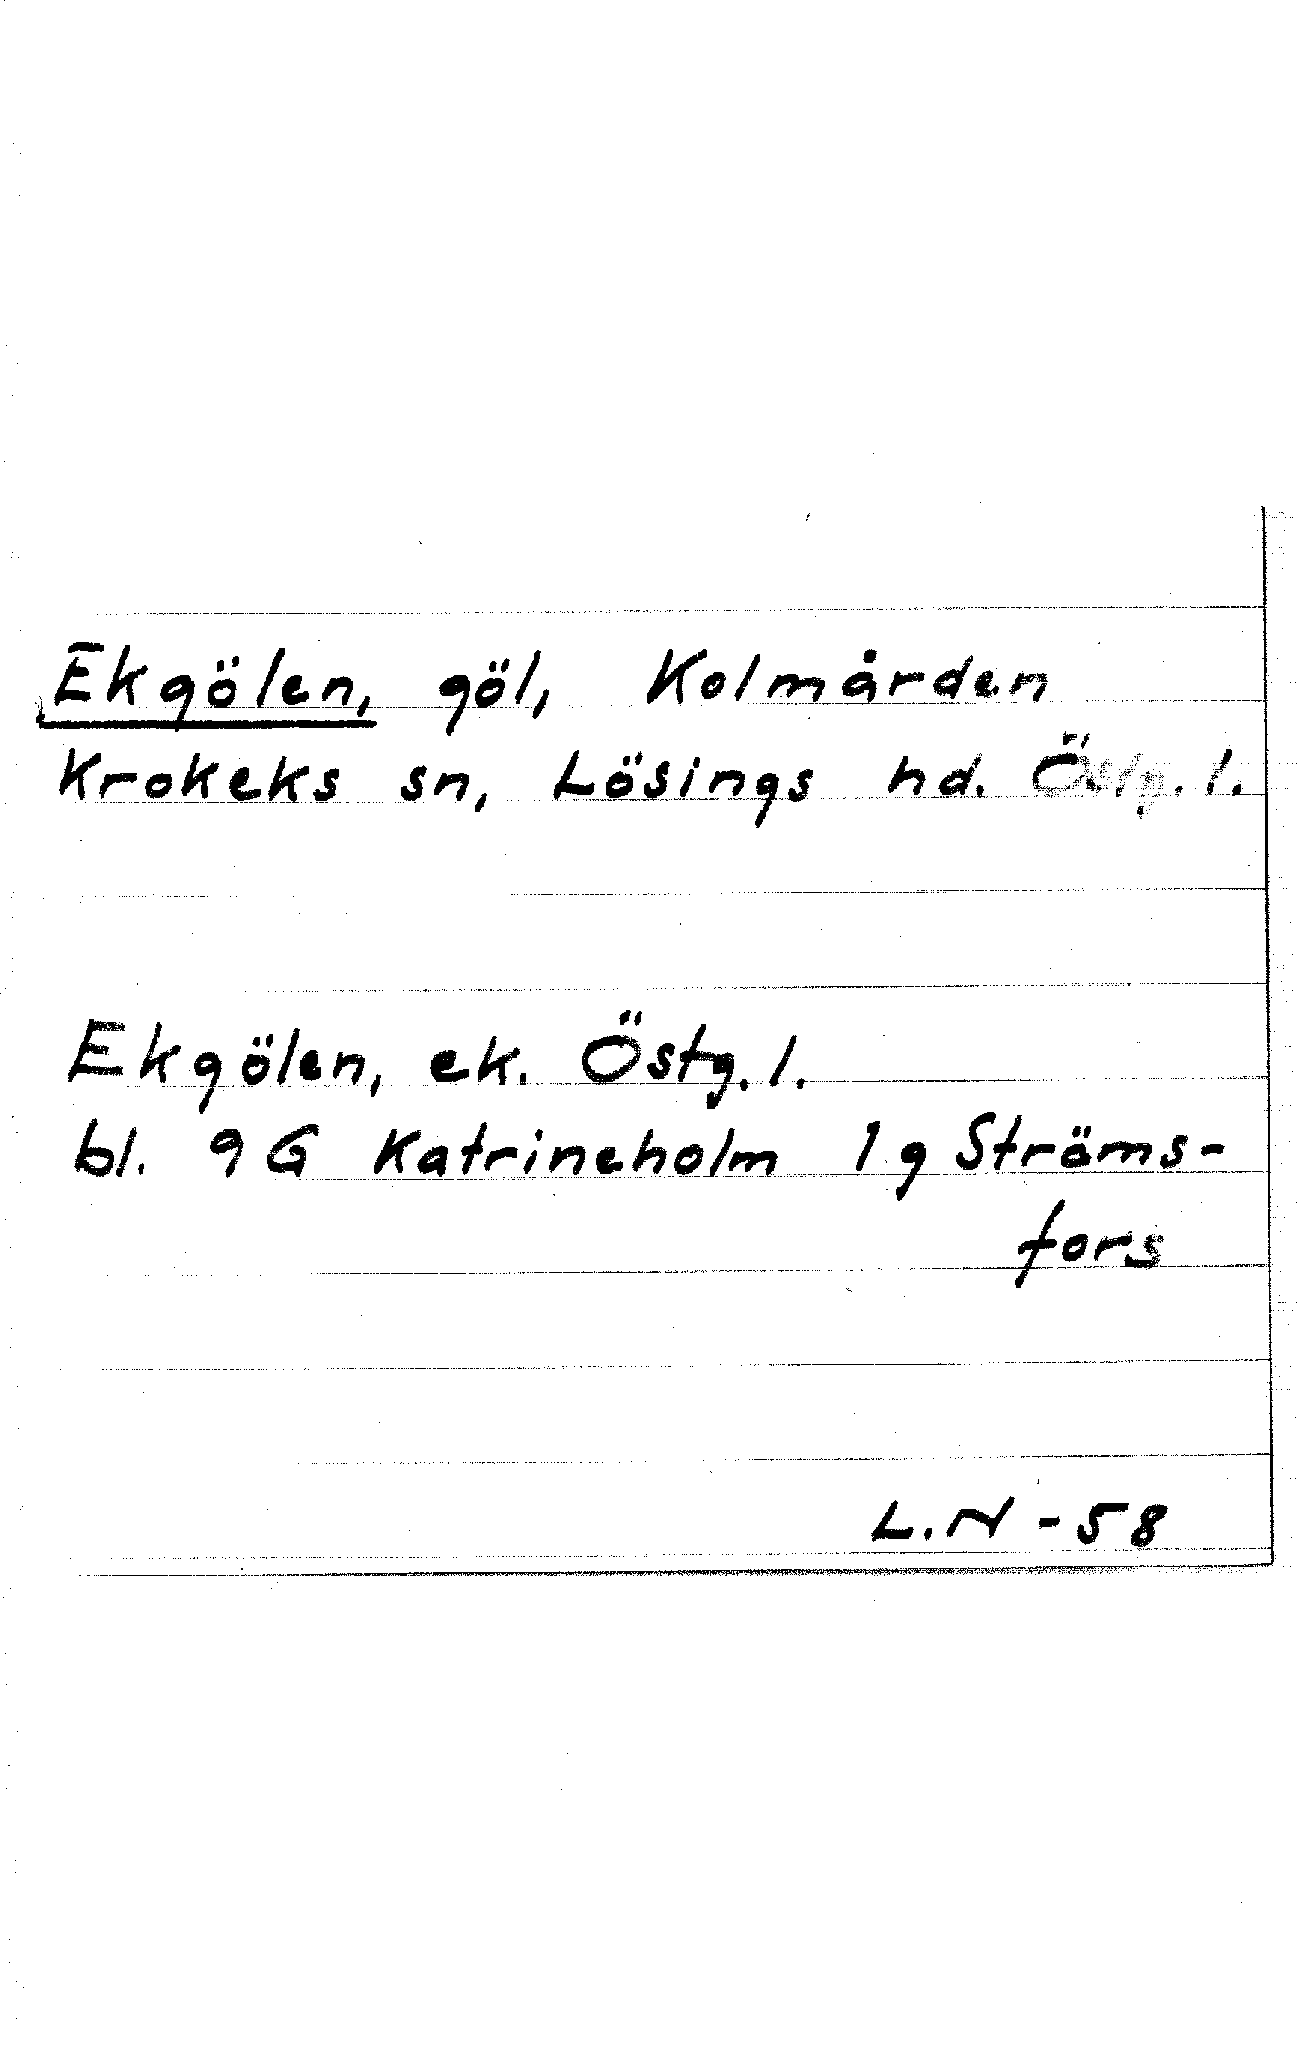 Ekgölen, göl, Kolmården
Krokeks sn, Lösings hd. Östg. l.
Ekgölen, ek. Östg. l.
bl. 9 G Katrineholm 1 g Ströms-
fors
L.N - 58